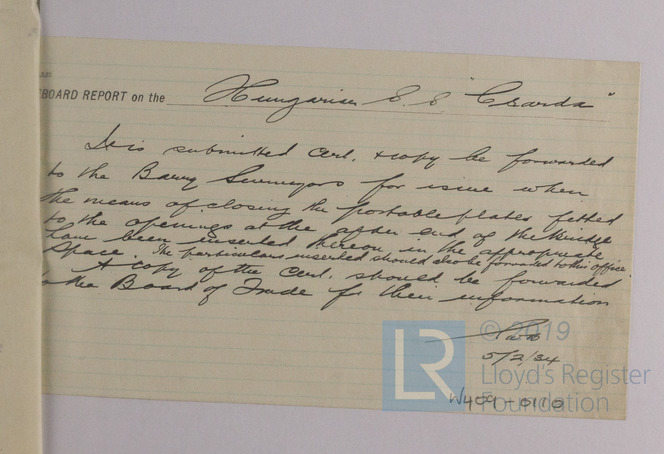 BOARD REPORT on the Hungarian S.S "Csarda"
It is submitted cert. & copy be forwarded
to the Barry Surveyors for issue when
the means of closing the portable plates fitted
to the openings at the after end of the Bridge
have been inserted thereon in the appropriate
space. The particulars inserted should also be forwarded to this office.
A copy of the cert. should be forwarded
to the Board of Trade for their information
5/2/34
© 2019
LR Lloyd's Register
Foundation
W409-0110